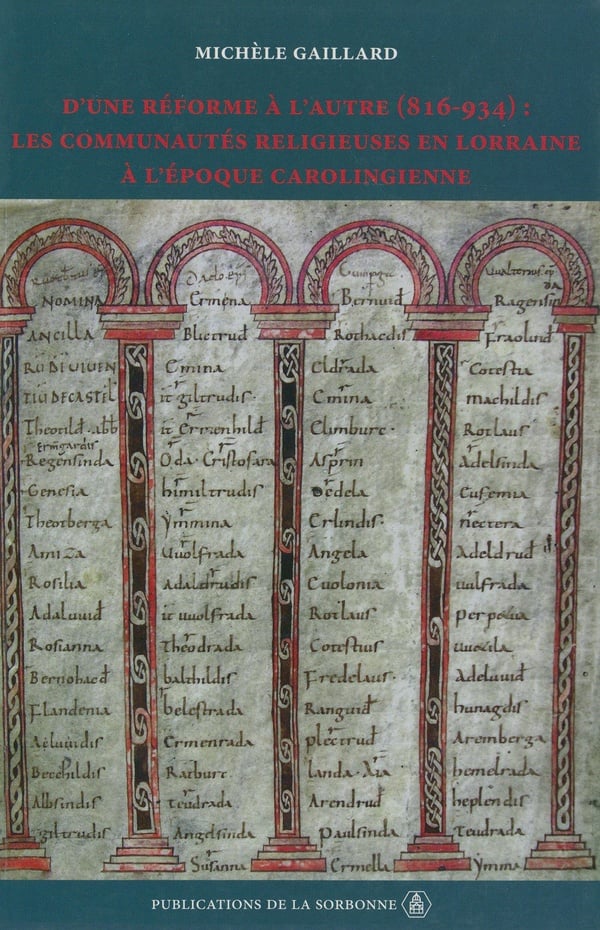 MICHÈLE GAILLARD
D'UNE RÉFORME À L'AUTRE (816-934) :
LES COMMUNAUTÉS RELIGIEUSES EN LORRAINE
À L'ÉPOQUE CAROLINGIENNE
NOMINA
ANCILLA
Regensinda
Genesia
Theotberga
Amiza
Rosilia
Adaluuid
Rosianna
Bernohaed
Flandenia
Aeluuidis
Berehildis
Albsindis
giltrudis
Ermena
Blictrud
Emina
it giltrudis
it Ermenhild
Oda Cristosara
himiltrudis
Ymmina
Uuolfrada
Adaldrudis
it uuolfrada
Theodrada
balthildis
belestrada
Ermenrada
Ratburc
teudrada
Angelsinda
Susanna
Bernuid
Rothaedis
Eldrada
Emina
Climburc
Asprin
Dedela
Erlindis
Angela
Euolonia
Rotlaus
Cotestius
Fredelaus
Ranguid
plectrud
landa
Arendrud
Paulsinda
Ermella
Ragensin
Fraolind
Cotestia
machildis
Rotlaus
Adelsinda
Eufemia
nectera
Adeldrud
uulfrada
perpetua
uuezila
Adeluuid
hunagdis
Aromberga
hemedrada
heplendis
Teudrada
Ymma
PUBLICATIONS DE LA SORBONNE